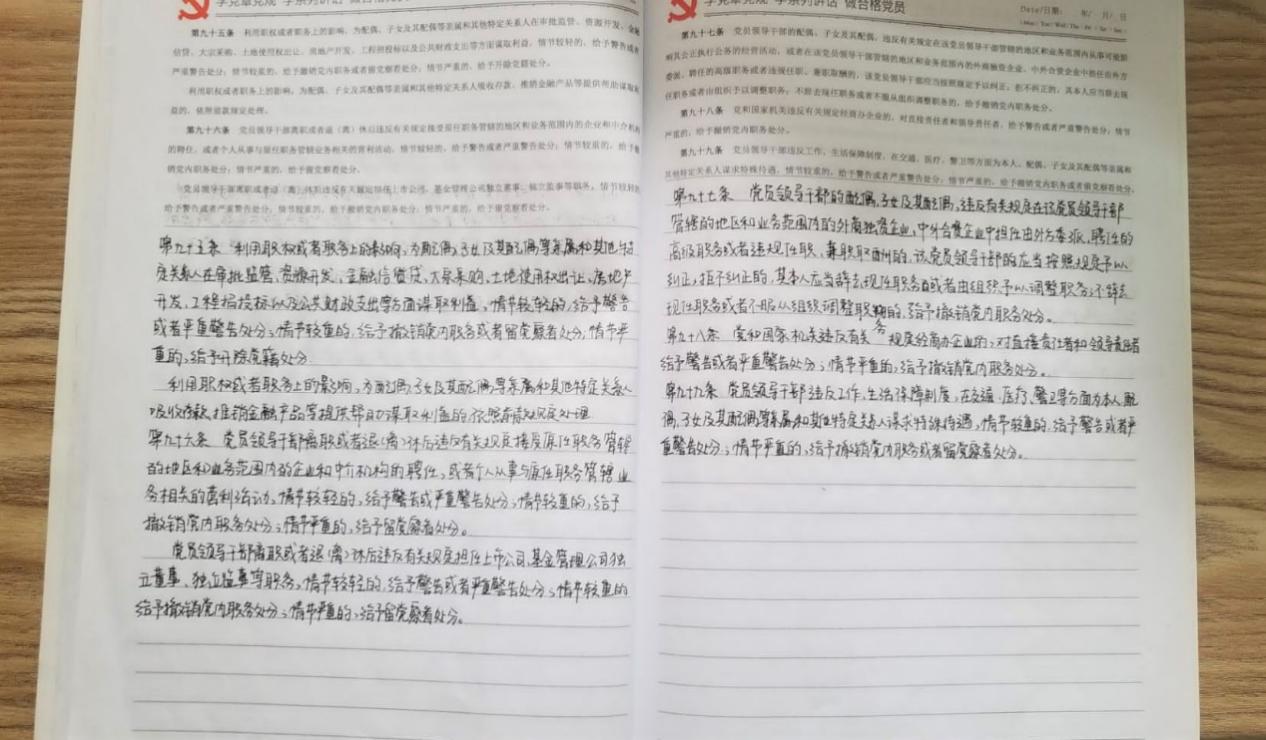 学党章党规 学系列讲话 做合格
第九十五条 利用职权或者职务上的影响，为配偶、子女及其配偶等亲属和其他特定关系人在审批监管、资源开发、金融
信贷、大宗采购、土地使用权出让、房地产开发、工程招投标以及公共财政支出等方面谋取利益，情节较轻的，给予警告或者
严重警告处分；情节较重的，给予撤销党内职务或者留党察看处分；情节严重的，给予开除党籍处分。
利用职权或者职务上的影响，为配偶、子女及其配偶等亲属和其他特定关系人吸收存款、推销金融产品等提供帮助谋取利
益的，依照前款规定处理。
第九十六条 党员领导干部离职或者退（离）休后违反有关规定接受原任职务管辖的地区和业务范围内的企业和中介机构
的聘任，或者个人从事与原任职务管辖业务相关的营利活动，情节较轻的，给予警告或者严重警告处分；情节较重的，给予撤
销党内职务处分；情节严重的，给予留党察看处分。
党员领导干部离职或者退（离）休后违反有关规定担任上市公司、基金管理公司独立董事、独立监事等职务，情节较轻的，
给予警告或者严重警告处分；情节较重的，给予撤销党内职务处分；情节严重的，给予留党察看处分。
第九十五条 利用职权或者职务上的影响，为配偶、子女及其配偶等亲属和其他特
定关系人在审批监管、资源开发、金融信贷、大宗采购、土地使用权出让、房地产
开发、工程招投标以及公共财政支出等方面谋取利益，情节较轻的，给予警告
或者严重警告处分；情节较重的，给予撤销党内职务或者留党察看处分，情节严
重的，给予开除党籍处分
利用职权或者职务上的影响，为配偶、子女及其配偶等亲属和其他特定关系人
吸收存款、推销金融产品等提供帮助谋取利益的，依照前款规定处理
第九十六条 党员领导干部离职或者退（离）休后违反有关规定接受原任职务管辖
的地区和业务范围内的企业和中介机构的聘任，或者个人从事与原任职务管辖业
务相关的营利活动，情节较轻的，给予警告或严重警告处分；情节较重的，给予
撤销党内职务处分；情节严重的，给予留党察看处分。
党员领导干部离职或者退（离）休后违反有关规定担任上市公司、基金管理公司独
立董事、独立监事等职务，情节较轻的，给予警告或者严重警告处分；情节较重的
给予撤销党内职务处分；情节严重的，给予留党察看处分。
学党章党规 学系列讲话 做合格党员
Date/日期： 年/ 月/ 日
第九十七条 党员领导干部的配偶、子女及其配偶，违反有关规定在该党员领导干部管辖的地区和业务范围内从事可能影
响其公正执行公务的经营活动，或者在该党员领导干部管辖的地区和业务范围内的外商独资企业、中外合资企业中担任由外方
委派、聘任的高级职务或者违规任职、兼职取酬的，该党员领导干部应当按照规定予以纠正；拒不纠正的，其本人应当辞去现
任职务或者由组织予以调整职务；不辞去现任职务或者不服从组织调整职务的，给予撤销党内职务处分。
第九十八条 党和国家机关违反有关规定经商办企业的，对直接责任者和领导责任者，给予警告或者严重警告处分；情节
严重的，给予撤销党内职务处分。
第九十九条 党员领导干部违反工作、生活保障制度，在交通、医疗、警卫等方面为本人、配偶、子女及其配偶等亲属和
其他特定关系人谋求特殊待遇，情节较重的，给予警告或者严重警告处分；情节严重的，给予撤销党内职务或者留党察看处分。
第九十七条 党员领导干部的配偶、子女及其配偶，违反有关规定在该党员领导干部
管辖的地区和业务范围内的外商独资企业，中外合资企业中担任由外方委派、聘任的
高级职务或者违规任职、兼职取酬的，该党员领导干部的应当按照规定予以
纠正，拒不纠正的，其本人应当辞去现任职务或者由组织予以调整职务；不辞去
现任职务或者不服从组织调整职务的，给予撤销党内职务处分。
第九十八条 党和国家机关违反有关规定经商办企业的，对直接责任者和领导责任者
给予警告或者严重警告处分；情节严重的，给予撤销党内职务处分。
第九十九条 党员领导干部违反工作、生活保障制度，在交通、医疗、警卫等方面为本人、配
偶、子女及其配偶等亲属和其他特定关系人谋求特殊待遇，情节较重的，给予警告或者严
重警告处分；情节严重的，给予撤销党内职务或者留党察看处分。